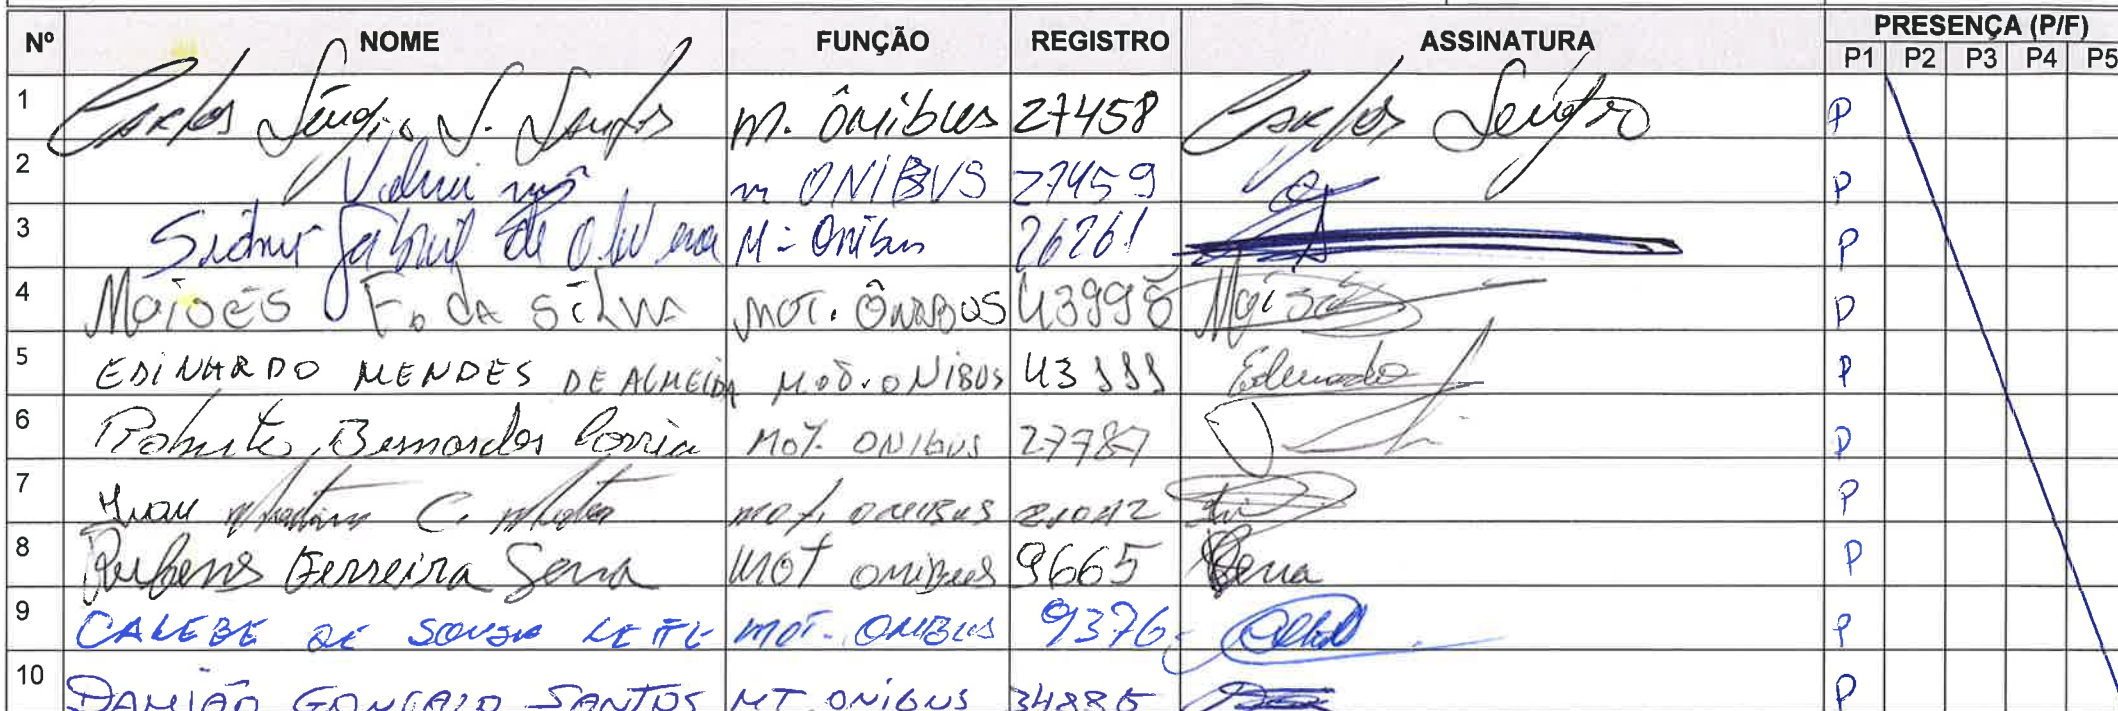 Nº NOME FUNÇÃO REGISTRO ASSINATURA PRESENÇA (P/F)
P1 P2 P3 P4 P5
1 Carlos Sérgio S. Santos M. Ônibus 27458 Carlos Sérgio P
2 m ONIBUS 27459 P
3 Sidnei Gabriel de Oliveira M - Onibus 26261 P
4 Moisés F. da Silva MOT. ÔNIBUS 43998 Moisés P
5 EDINARDO MENDES DE ALMEIDA MOT. ONIBUS 43 Edinardo P
6 Roberto Bernardes Correia MOT. ONIBUS 27787 P
7 C. MOT. ONIBUS P
8 Rubens Ferreira Sena MOT ONIBUS 9665 Sena P
9 CALEBE DE SOUSA LEITE MOT. ONIBUS 9376 P
10 DAMIÃO GONÇALO SANTOS MT ONIBUS 34885 P